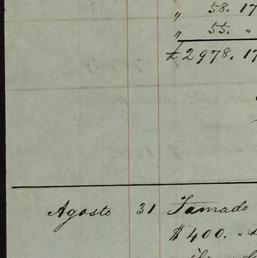 " 58. 17
" 55. "
£2978. 17
Agosto 31 Tamado
$400. "